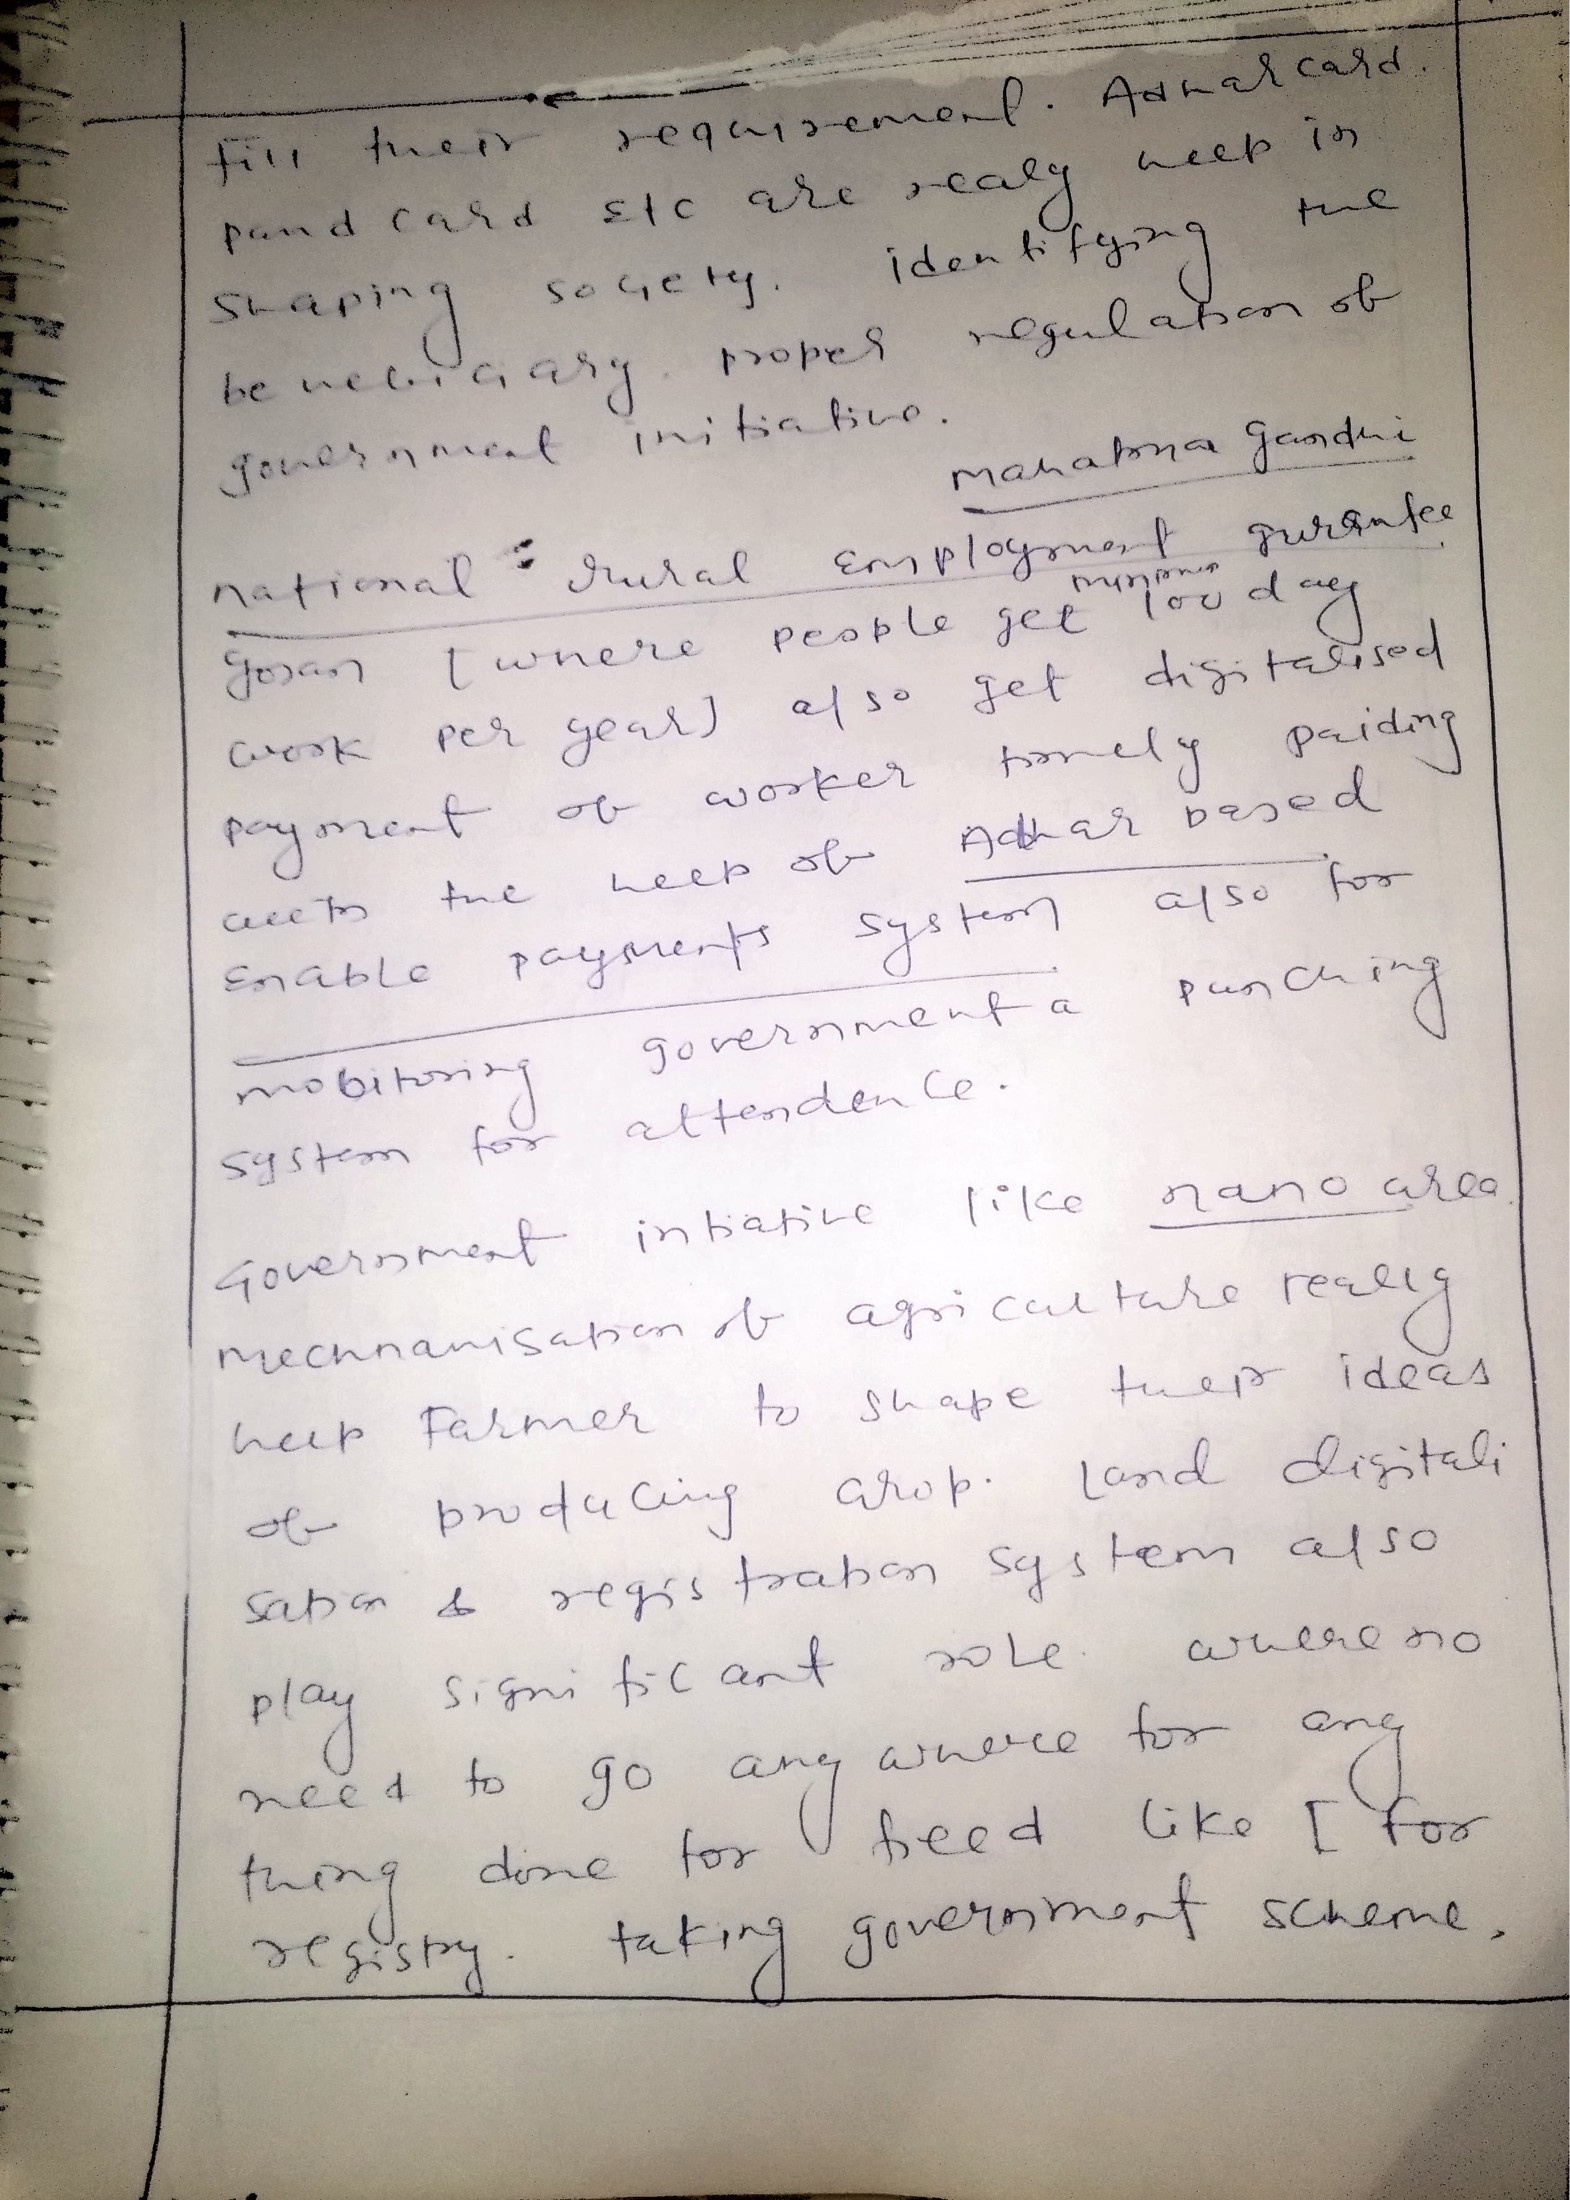 fill their requirement. Adhar card.
pand card etc are realy help in
shaping society. identifying the
beneficiary. proper regulation of
government initiative.
Mahatma Gandhi
national rural Employment gurantee
(where people get minimum 100 day
work per year) also get digitalised
payment of worker timely paiding
the help of Adhar based
Enable payments system also for
mobitoring government a punching
system for attendence.
Government intiative like nano area
mechnanisation of agriculture really
help Farmer to shape their ideas
of producing crop. Land digitali
sation & registration system also
play significant role. where no
need to go any where for any
thing done for feed like [for
registry. taking government scheme,